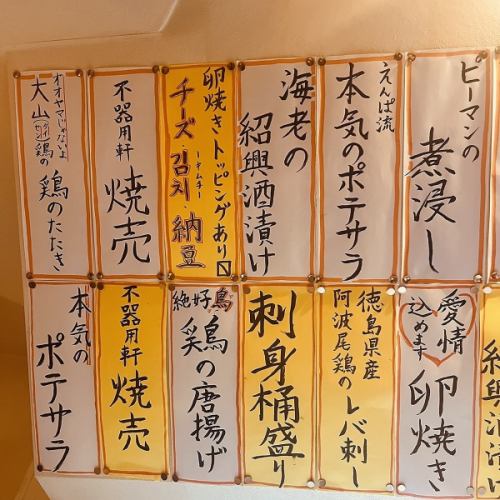 ピーマンの
煮浸し
えんぱ流
本気のポテサラ
海老の
紹興酒漬け
卵焼きトッピングあり〼
チーズ・金沢・納豆
不器用軒
焼売
オオヤマじゃないよ
大山(ダイセン)鶏の
鶏のたたき
愛情
込めます
卵焼き
徳島県産
阿波尾鶏の
レバ刺し
刺身桶盛り
絶好鳥
鶏の唐揚げ
不器用軒
焼売
本気の
ポテサラ
紹興酒漬